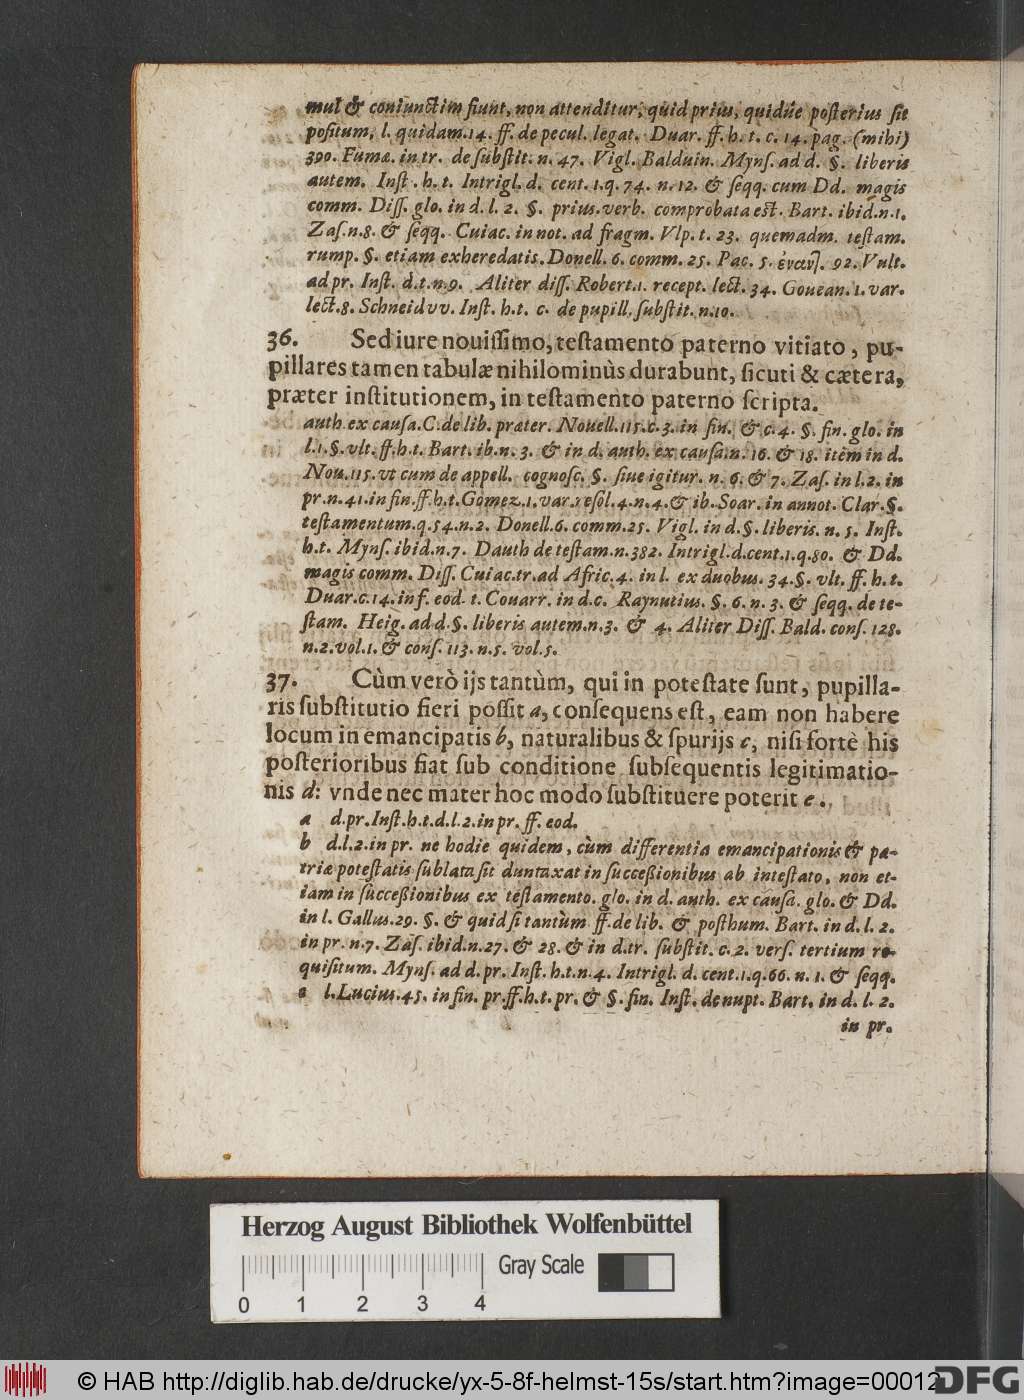 mul & coniunctim fiunt, non attenditur, quid prius, quidúe posterius sit
positum, l. quidam. 14. ff. de pecul. legat. Duar. ff. h. t. c. 14. pag. (mihi)
390. Fumæ. in tr. de substit. n. 47. Vigl. Balduin. Myns. ad d. §. liberis
autem. Inst. h. t. Intrigl. d. cent. 1. q. 74. n. 12. & seqq. cum Dd. magis
comm. Diss. glo. in d. l. 2. §. prius. verb. comprobata est. Bart. ibid. n. 1.
Zas. n. 8. & seqq. Cuiac. in not. ad fragm. Vlp. t. 23. quemadm. testam.
rump. §. etiam exheredatis. Donell. 6. comm. 25. Pac. 5. 92. Vult.
ad pr. Inst. d. t. n. 9. Aliter diss. Robert. 1. recept. lect. 34. Gouean. 1. var.
lect. 8. Schneidvv. Inst. h. t. c. de pupill. substit. n. 10.
36. Sed iure nouissimo, testamento paterno vitiato, pu-
pillares tamen tabulæ nihilominùs durabunt, sicuti & cætera,
præter institutionem, in testamento paterno scripta.
auth. ex causa. C. de lib. præter. Nouell. 115. c. 3. in fin. & c. 4. §. fin. glo. in
l. 1. §. vlt. ff. h. t. Bart. ib. n. 3. & in d. auth. ex causa. n. 16. & 18. item in d.
Nou. 115. vt cum de appell. cognosc. §. siue igitur. n. 6. & 7. Zas. in l. 2. in
pr. n. 41. in fin. ff. h. t. Gomez. 1. var. resol. 4. n. 4. & ib. Soar. in annot. Clar. §.
testamentum. q. 54. n. 2. Donell. 6. comm. 25. Vigl. in d. §. liberis. n. 5. Inst.
h. t. Myns. ibid. n. 7. Dauth de testam. n. 382. Intrigl. d. cent. 1. q. 80. & Dd.
magis comm. Diss. Cuiac. tr. ad Afric. 4. in l. ex duobus. 34. §. vlt. ff. h. t.
Duar. c. 14. inf. eod. t. Couarr. in d. c. Raynutius. §. 6. n. 3. & seqq. de te-
stam. Heig. ad d. §. liberis autem. n. 3. & 4. Aliter Diss. Bald. cons. 128.
n. 2. vol. 1. & cons. 113. n. 5. vol. 5.
37. Cùm verò ijs tantùm, qui in potestate sunt, pupilla-
ris substitutio fieri possit a, consequens est, eam non habere
locum in emancipatis b, naturalibus & spurijs c, nisi fortè his
posterioribus fiat sub conditione subsequentis legitimatio-
nis d: vnde nec mater hoc modo substituere poterit e.
a d. pr. Inst. h. t. d. l. 2. in pr. ff. eod.
b d. l. 2. in pr. ne hodie quidem, cùm differentia emancipationis & pa-
triæ potestatis sublata sit duntaxat in successionibus ab intestato, non et-
iam in successionibus ex testamento. glo. in d. auth. ex causa. glo. & Dd.
in l. Gallus. 29. §. & quid si tantùm ff. de lib. & posthum. Bart. in d. l. 2.
in pr. n. 7. Zas. ibid. n. 27. & 28. & in d. tr. substit. c. 2. vers. tertium re-
quisitum. Myns. ad d. pr. Inst. h. t. n. 4. Intrigl. d. cent. 1. q. 66. n. 1. & seqq.
c l. Lucius. 45. in fin. pr. ff. h. t. pr. & §. fin. Inst. de nupt. Bart. in d. l. 2.
in pr.
Herzog August Bibliothek Wolfenbüttel
Gray Scale
0 1 2 3 4
© HAB http://diglib.hab.de/drucke/yx-5-8f-helmst-15s/start.htm?image=00012
DFG